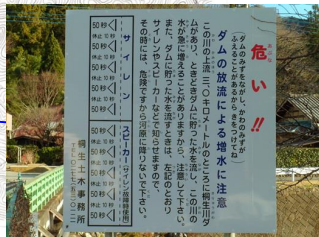 危い!!
あぶな
ダムのみずをながし、かわのみずが
ふえることがあるからきをつけてね
ダムの放流による増水に注意
この川の上流三.〇キロメートルのところに桐生川ダ
ムがあり、ときどきダムに貯った水を流し、この川の
水が急に増えることがありますから、注意して下さい。
また、ダムに貯った水を流すときは、左記のとおり
サイレンやスピーカーなどで知らせますので、
その時には、危険ですから河原に降りないで下さい。
サイレン
50秒
休止10秒
50秒
休止10秒
50秒
休止10秒
50秒
スピーカー(サイレン故障時使用)
50秒
休止10秒
50秒
休止10秒
50秒
休止10秒
50秒
桐生土木事務所